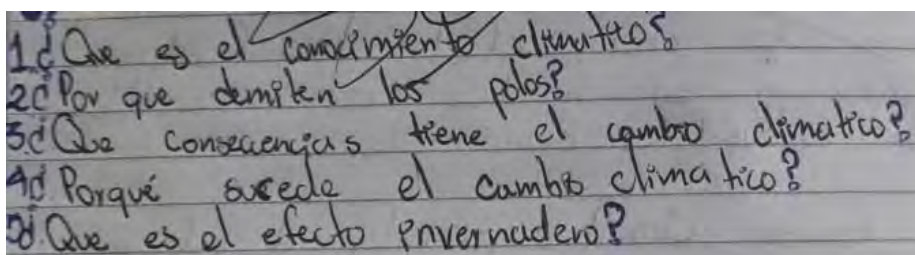 1¿Que es el conocimiento climatico?
2¿Por que demiten los polos?
3¿Que consecuencias tiene el cambio climatico?
4¿Porqué sucede el cambio climatico?
5¿Que es el efecto envernadero?